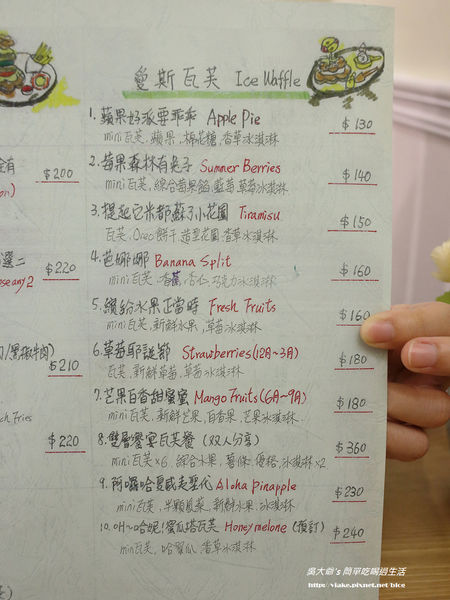 愛斯瓦芙 Ice Waffle
1.蘋果好派要乖乖 Apple Pie $130
mini瓦芙.蘋果.棉花糖.香草冰淇淋
2.莓果森林有兔子 Summer Berries $140
mini瓦芙.綜合莓果餡.藍莓.草莓冰淇淋
3.提起它米都蘇了小花園 Tiramisu $150
瓦芙.Oreo餅干.造型花園.香草冰淇淋
4.芭娜娜 Banana Split $160
mini瓦芙.香蕉.杏仁.巧克力冰淇淋
5.繽紛水果正當時 Fresh Fruits $160
mini瓦芙.新鮮水果.草莓冰淇淋
6.草莓耶誕節 Strawberries(12月~3月) $180
瓦芙.新鮮草莓.草莓冰淇淋
7.芒果百香甜蜜蜜 Mango Fruits(6月~9月) $180
mini瓦芙.新鮮芒果.百香果.芒果冰淇淋..
8.雙層饗宴瓦芙餐(双人分享) $360
mini瓦芙×6.綜合水果.薯條.優格.冰淇淋×2
9.阿囉哈夏威夷聖代 Aloha Pinapple $230
mini瓦芙.半顆鳳梨.新鮮水果.冰淇淋
10.叶~哈妮!蜜瓜塔瓦芙 Honey melone (預訂) $240
mini瓦芙.哈蜜瓜.香草冰淇淋
$200
on)
選二 $220
ose any 2
$210
ch Fries
$220
吳大爺's 簡單吃喝過生活
http://viake.pixnet.net/blog